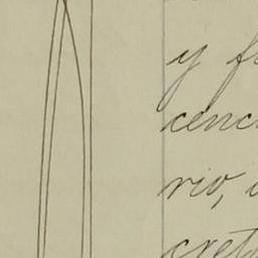 y f
cenc
rio,
creto